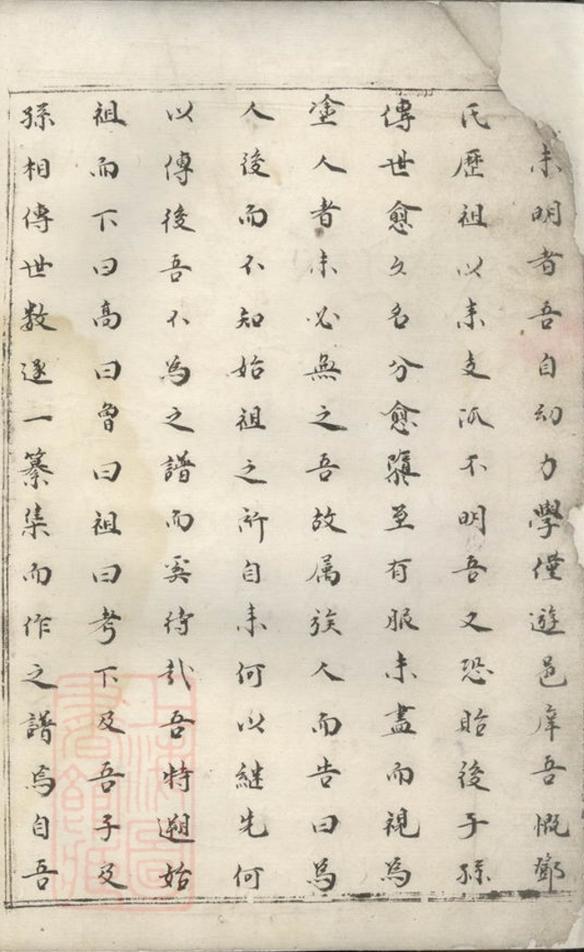 未明者吾自幼力學僅遊邑庠吾慨
氏歷祖以来支派不明吾又恐貽後子孫
傳世愈久名分愈隳至有服未盡而視為
塗人者未必無之吾故属族人而告曰為
人後而不知始祖之所自来何以継先何
以傳後吾不為之譜而奚待哉吾特遡始
祖而下曰高曰曾曰祖曰考下及吾子及
孫相傳世数逐一纂集而作之譜焉自吾
上海圖
書館藏